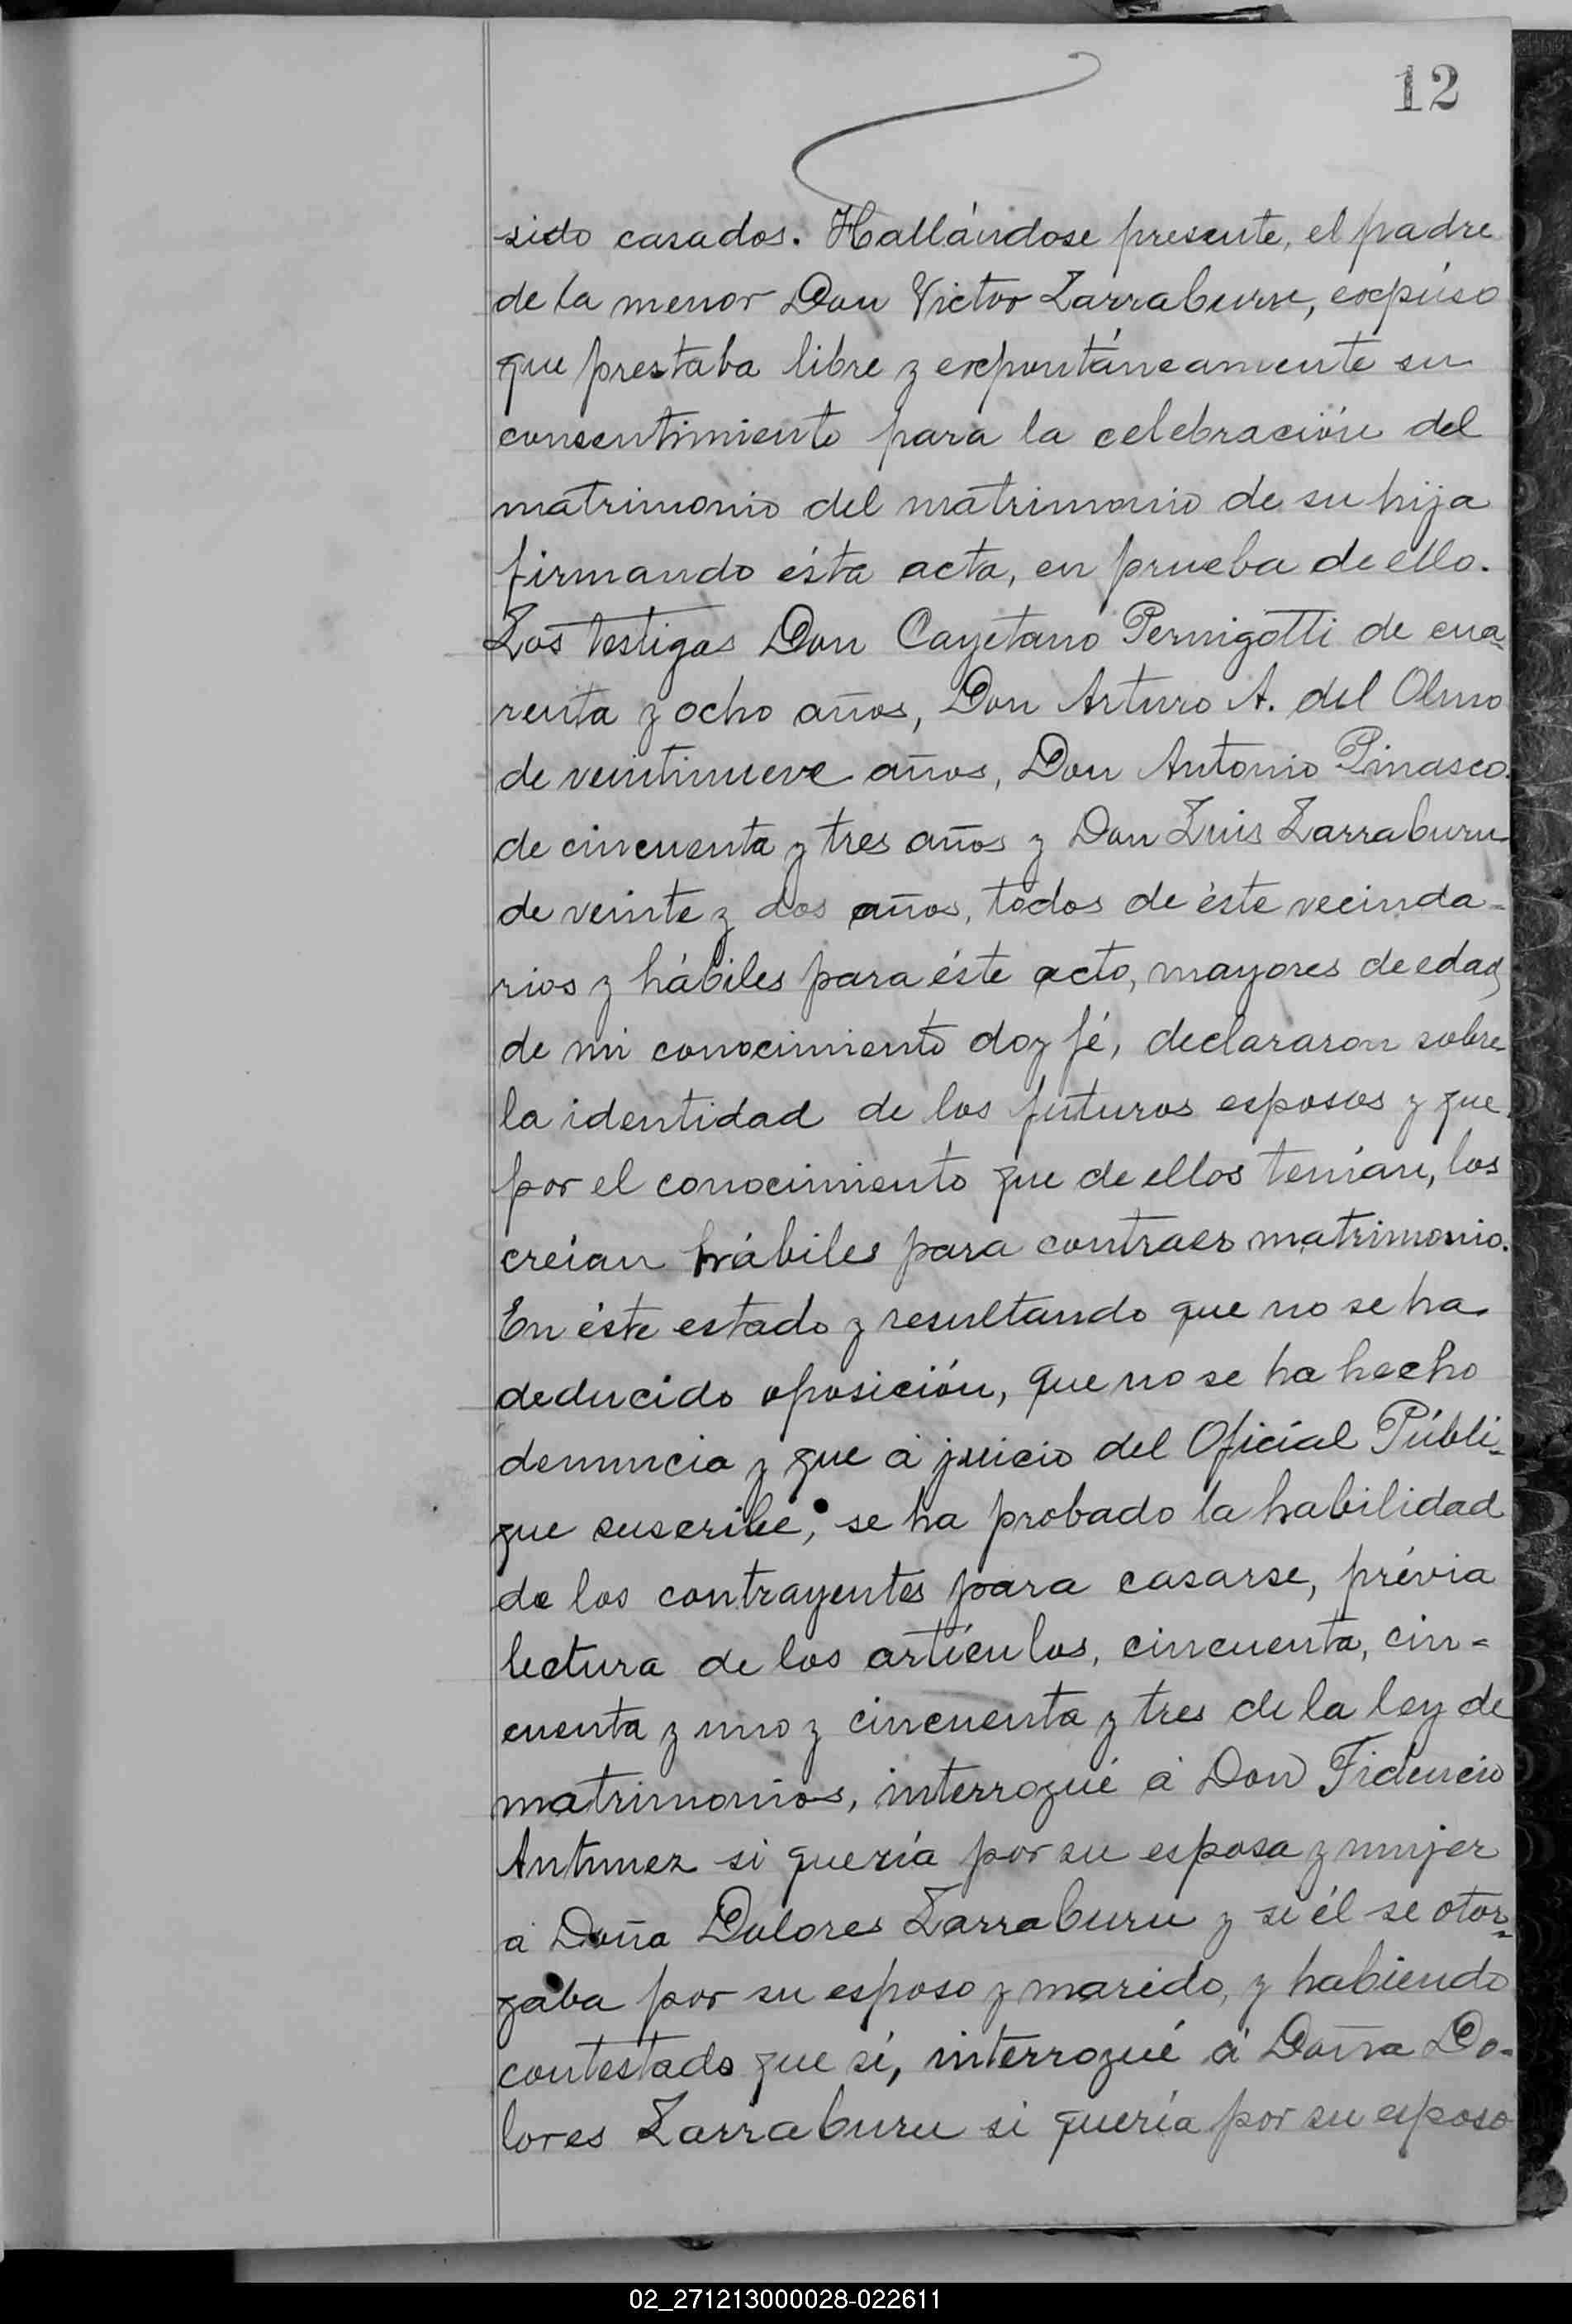 12
sido casados. Hallándose presente, el padre
de la menor Don Victor Larraburu, expúso
que prestaba libre y expontáneamente su
consentimiento para la celebración del
matrimonio del matrimonio de su hija
firmando ésta acta, en prueba de ello.
Los testigos Don Cayetano Pernigotti de cua-
renta y ocho años, Don Arturo A. del Olmo
de veintinueve años, Don Antonio Pinasco
de cincuenta y tres años y Don Luis Larraburu
de veinte y dos años, todos de éste vecinda-
rios y hábiles para éste acto, mayores de edad,
de mi conocimiento doy fé, declararon sobre
la identidad de los futuros esposos y que
por el conocimiento que de ellos tenían, los
creían hábiles para contraer matrimonio.
En éste estado y resultando que no se ha
deducido oposición, que no se ha hecho
denuncia y que á juicio del Oficial Públi-
que suscribe, se ha probado la habilidad
de los contrayentes para casarse, prévia
lectura de los artículos, cincuenta, cin-
cuenta y uno y cincuenta y tres de la ley de
matrimonios, interrogué á Don Fidencio
Antunez si quería por su esposa y mujer
á Doña Dolores Larraburu y si él se otor-
gaba por su esposo y marido, y habiendo
contestado que sí, interrogué á Doña Do-
lores Larraburu si quería por su esposo
02_271213000028-022611